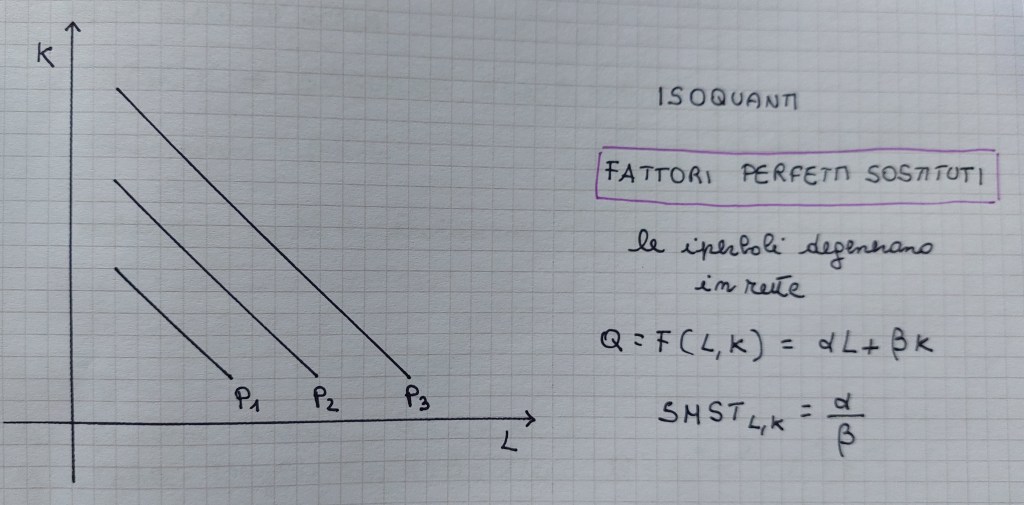 K
ISOQUANTI
FATTORI PERFETTI SOSTITUTI
le iperboli degenerano
in rette
Q = F(L,K) = αL + βK
P1 P2 P3
SMST L,K = α/β
L